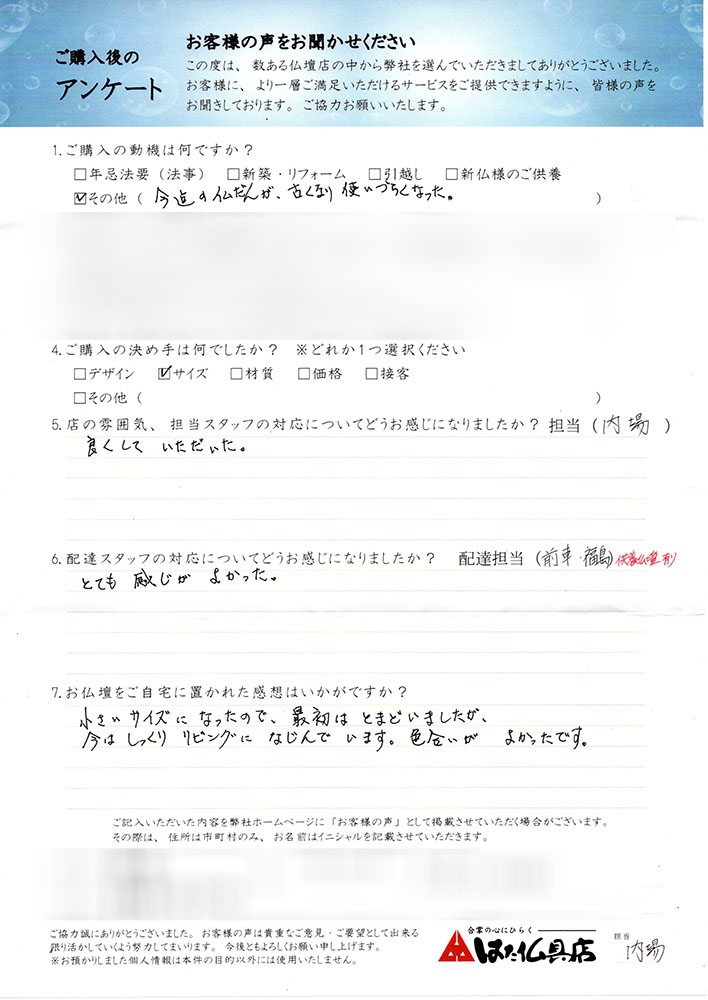 ご購入後の
アンケート
お客様の声をお聞かせください
この度は、数ある仏壇店の中から弊社を選んでいただきましてありがとうございました。
お客様に、より一層ご満足いただけるサービスをご提供できますように、皆様の声を
お聞きしております。ご協力お願いいたします。
1.ご購入の動機は何ですか？
□年忌法要（法事） □新築・リフォーム □引越し □新仏様のご供養
☑その他（今迄の仏だんが、古くなり使いづらくなった。）
4.ご購入の決め手は何でしたか？ ※どれか1つ選択ください
□デザイン ☑サイズ □材質 □価格 □接客
□その他（ ）
5.店の雰囲気、担当スタッフの対応についてどうお感じになりましたか？担当（内場）
良くして いただいた。
6.配達スタッフの対応についてどうお感じになりましたか？ 配達担当（前車・福島）供養仏壇有り
とても 感じが よかった。
7.お仏壇をご自宅に置かれた感想はいかがですか？
小さいサイズに なったので、最初は とまどいましたが、
今は しっくり リビングに なじんで います。色合いが よかったです。
ご記入いただいた内容を弊社ホームページに「お客様の声」として掲載させていただく場合がございます。
その際は、住所は市町村のみ、お名前はイニシャルを記載させていただきます。
ご協力誠にありがとうございました。お客様の声は貴重なご意見・ご要望として出来る
限り活かしていくよう努力してまいります。今後ともよろしくお願い申し上げます。
※お預かりしました個人情報は本件の目的以外には使用いたしません。
合掌の心にひらく
はた仏具店
担当
内場